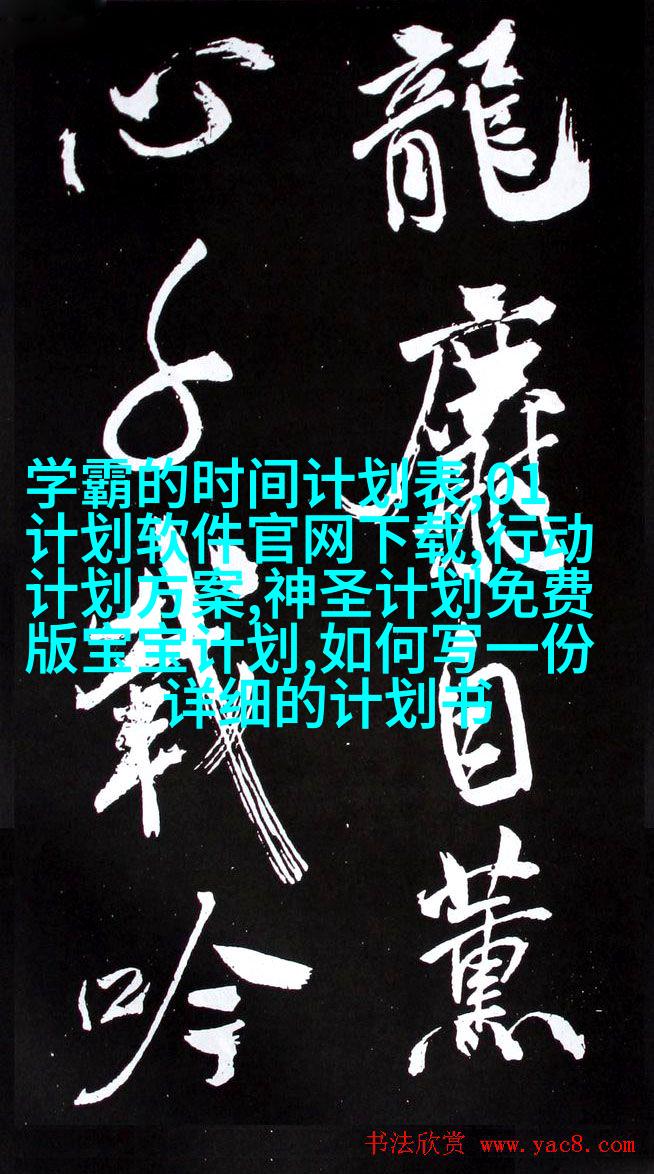 龍自薰
心千載吟
学霸的时间计划表,01
计划软件官网下载,行动
计划方案,神圣计划免费
版宝宝计划,如何写一份
详细的计划书
书法欣赏 www.yac8.com